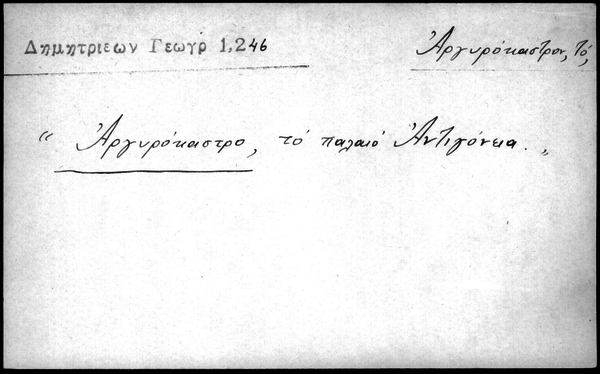 Δημητριεων Γεωγρ 1,246
Ἀργυρόκαστρον, τό,
" Ἀργυρόκαστρο, τό παλαιό Ἀντιγόνεια. „